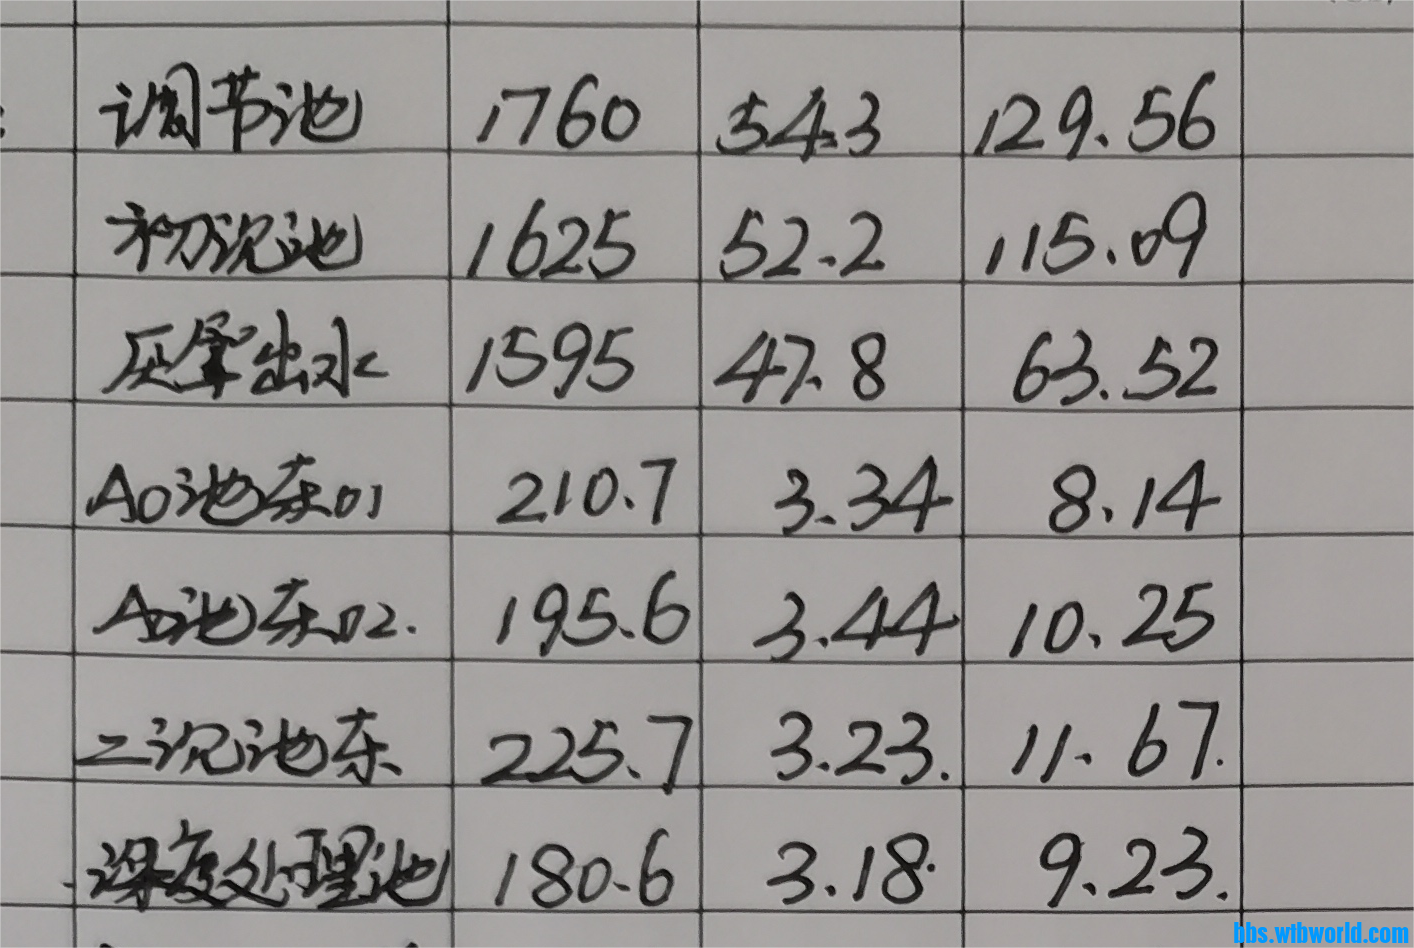 调节池 1760 54.3 129.56
初沉池 1625 52.2 115.09
厌氧出水 1595 47.8 63.52
AO池东01 210.7 3.34 8.14
AO池东02. 195.6 3.44 10.25
二沉池东 225.7 3.23. 11.67.
深度处理池 180.6 3.18. 9.23.
bbs.wtbworld.com